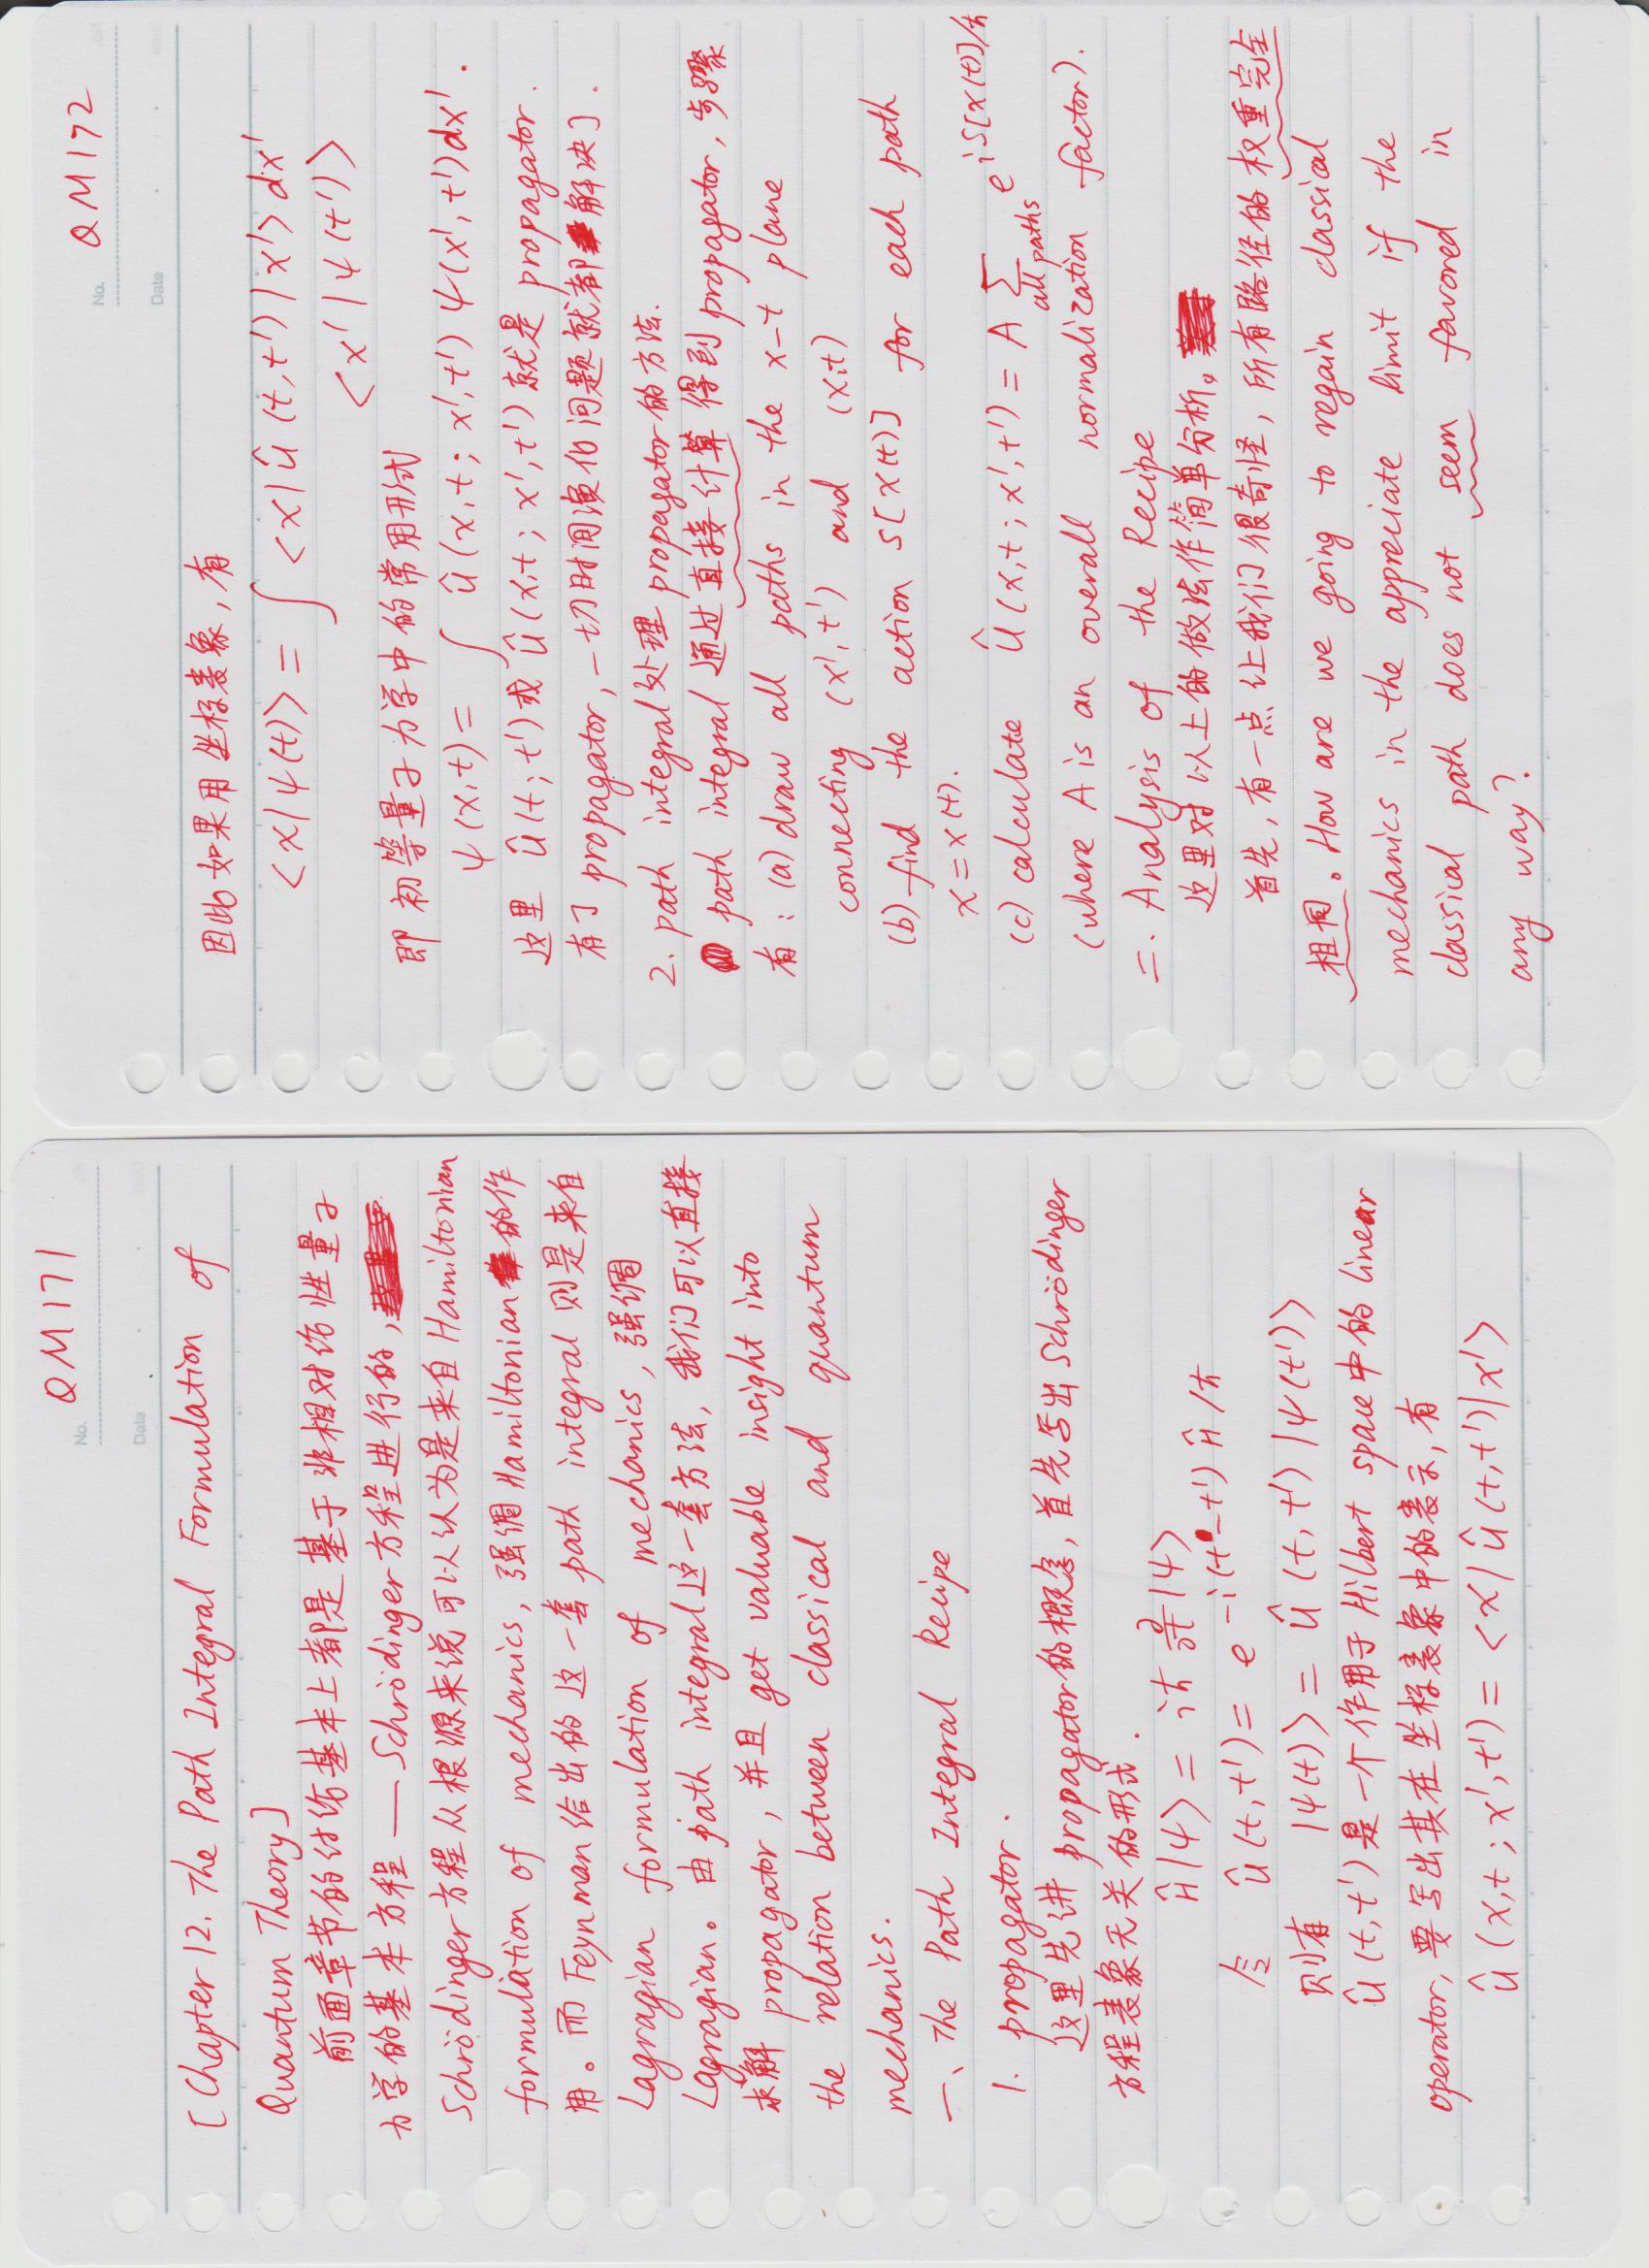 No. QM171
Date
[Chapter 12. The Path Integral Formulation of
Quantum Theory]
前面章节的讨论基本上都是基于非相对论性量子
力学的基本方程 — Schrödinger方程进行的,
Schrödinger方程从根源来说可以认为是来自Hamiltonian
formulation of mechanics, 强调Hamiltonian的作
用。而Feynman给出的这一套path integral则是来自
Lagragian formulation of mechanics, 强调
Lagragian。由path integral这一套方法, 我们可以直接
求解propagator, 并且get valuable insight into
the relation between classical and quantum
mechanics.
一、The Path Integral Recipe
1. propagator.
这里先讲propagator的概念, 首先写出Schrödinger
方程表象无关的形式.
Ĥ|ψ> = iħ ∂/∂t |ψ>
令 Û(t,t') = e^{-i(t-t')Ĥ/ħ}
则有 |ψ(t)> = Û(t,t') |ψ(t')>
Û(t,t')是一个作用于Hilbert space中的linear
operator, 要写出其在坐标表象中的表示, 有
Û(x,t; x',t') = <x|Û(t,t')|x'>
No. QM172
Date
因此如果用坐标表象, 有
<x|ψ(t)> = ∫ <x|Û(t,t')|x'> dx'
<x'|ψ(t')>
即初等量子力学中的常用形式
ψ(x,t) = ∫ Û(x,t; x',t') ψ(x',t') dx'.
这里 Û(t;t')或Û(x,t; x',t')就是propagator.
有了propagator, 一切时间演化问题就都解决了.
2. path integral处理propagator的方法.
path integral通过直接计算得到propagator, 步骤
有: (a) draw all paths in the x-t plane
connecting (x',t') and (x,t)
(b) find the action S[x(t)] for each path
x = x(t).
(c) calculate Û(x,t; x',t') = A ∑_{all paths} e^{iS[x(t)]/ħ}
(where A is an overall normalization factor).
二. Analysis of the Recipe
这里对以上的做法作简单分析。
首先, 有一点让我们很奇怪, 所有路径的权重完全
相同。How are we going to regain classical
mechanics in the appreciate limit if the
classical path does not seem favored in
any way?